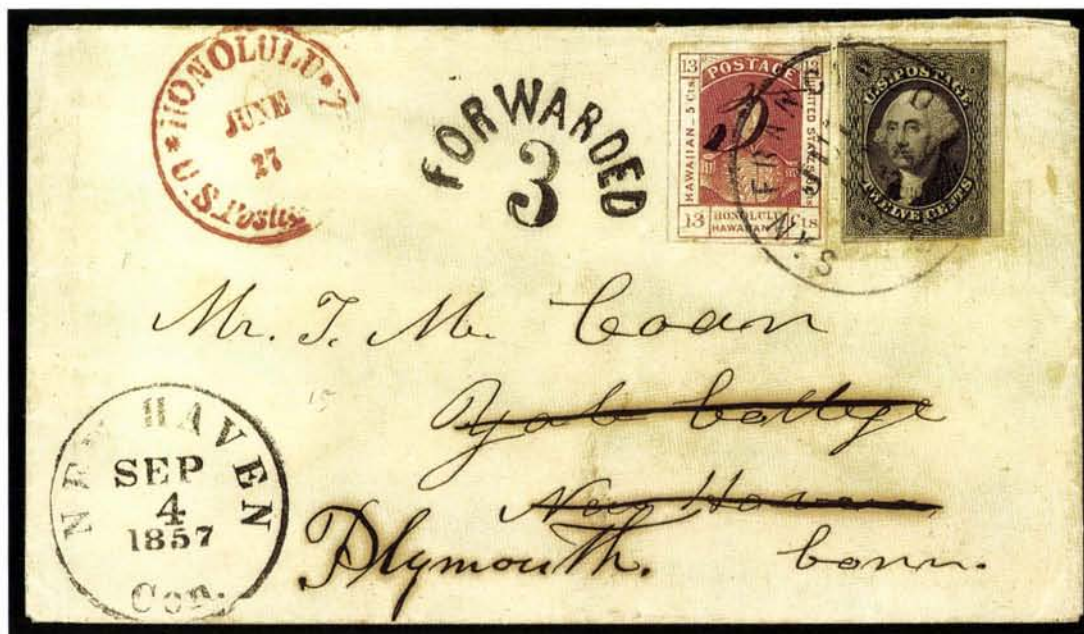 * HONOLULU *
JUNE
27
U.S. Postage
FORWARDED
3
13 POSTAGE
HAWAIIAN 5 Cts
UNITED STATES
5
13 HONOLULU Cts
HAWAIIAN
SAN FRAN
U.S. POSTAGE
TWELVE CENTS
Mr. T. M. Coan
Yale College
New Haven,
Plymouth. Conn.
NEW HAVEN
SEP
4
1857
Con.